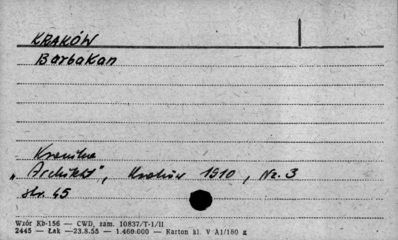 KRAKÓW
Barbakan
Kronika
„Architekt", Kraków 1910, Nr. 3
str. 45
Wzór Kb-156 — CWD, zam. 10837/T-1/II
2445 — Łak —23.8.55 — 1.460.000 — Karton kl. V A1/180 g